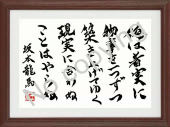 俺は着実に
物事を一つずつ
築きあげてゆく
現実に合わぬ
ことはやらぬ
坂本龍馬